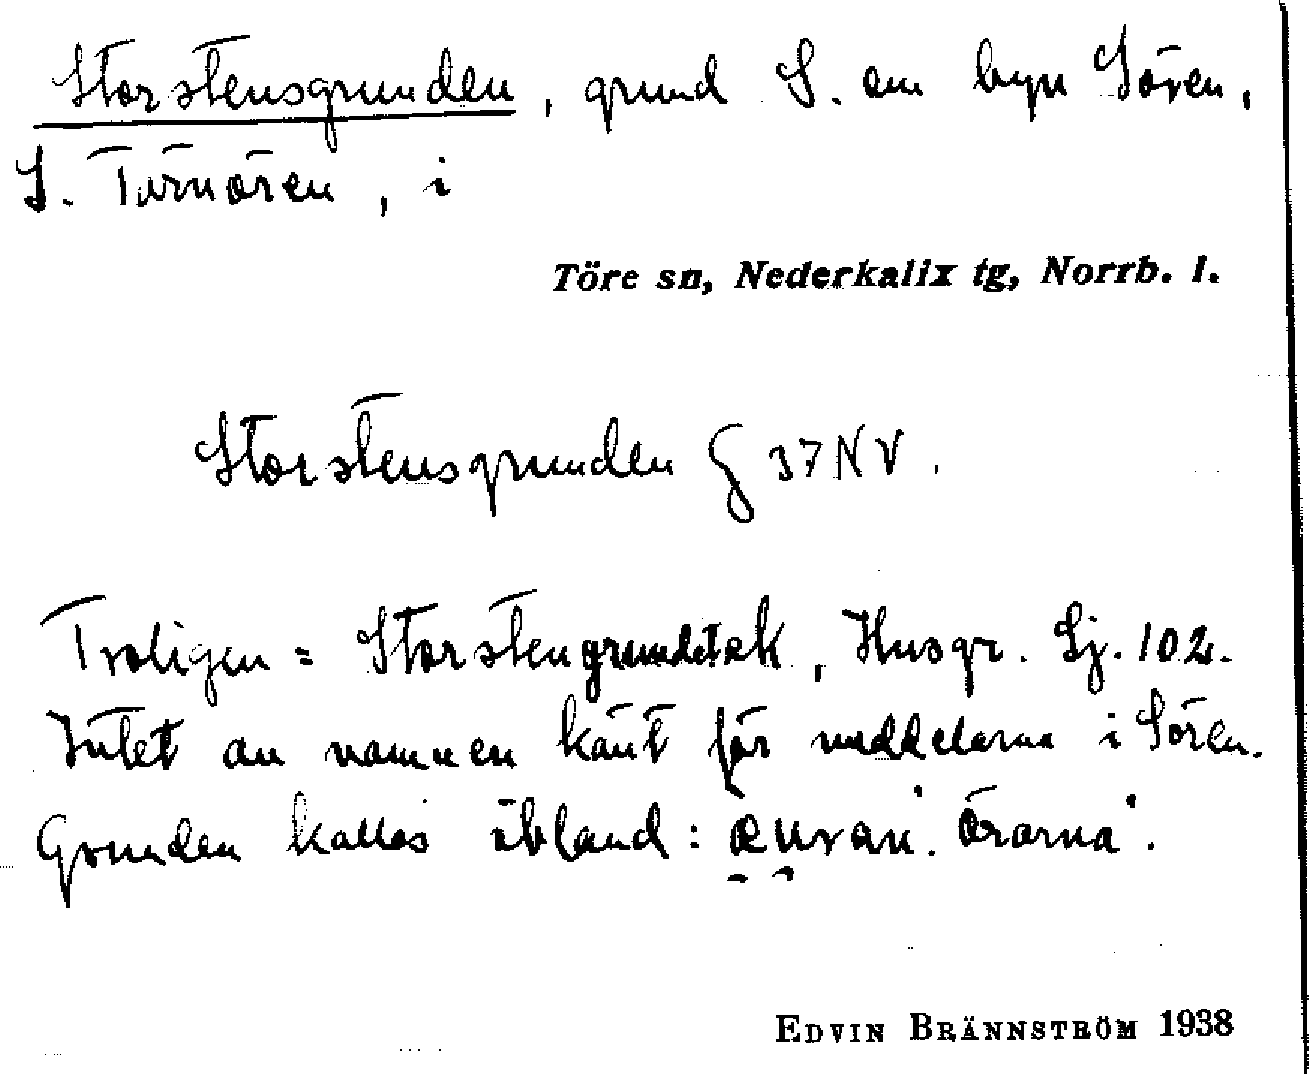 Storstensgrunden, grund S. om byn Sören,
S. Törnören, i
Töre sn, Nederkalix tg, Norrb. l.
Storstensgrunden G 37 NV.
Troligen = Storstengrundet ek., Husgr. Sj. 102.
Intet av namnen känt för meddelarna i Sören.
Grunden kallas ibland: örarna.
EDVIN BRÄNNSTRÖM 1938